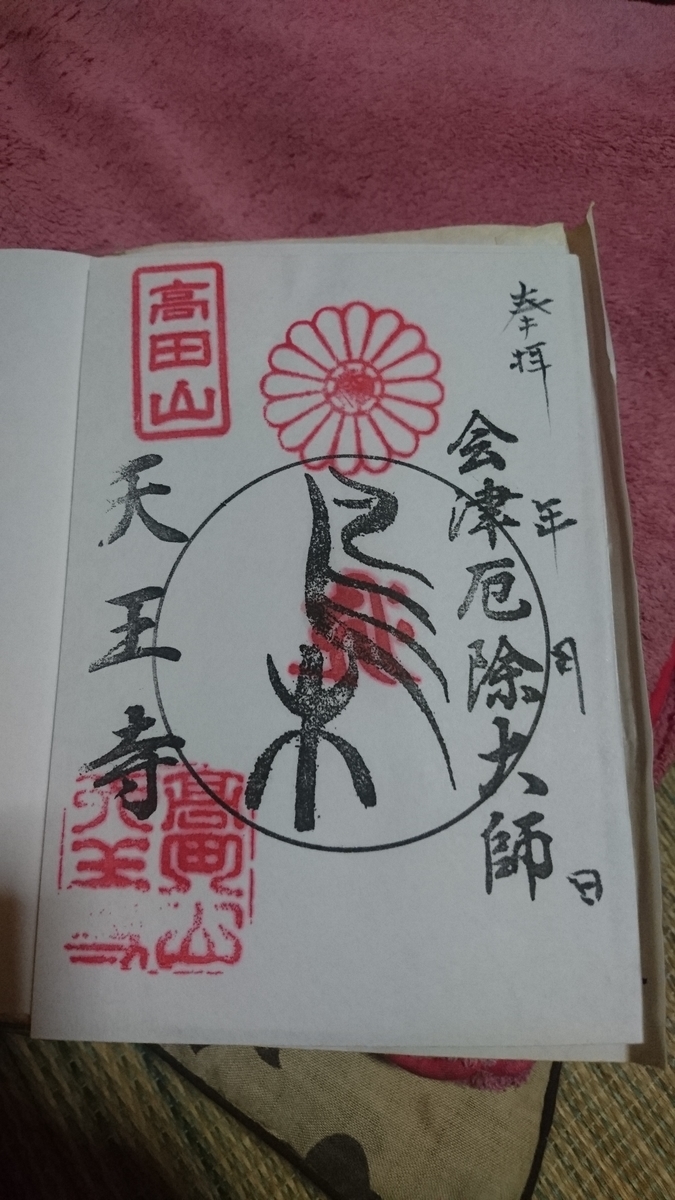 奉拝
年 月 日
会津厄除大師
高田山
天王寺
高田山
天王寺